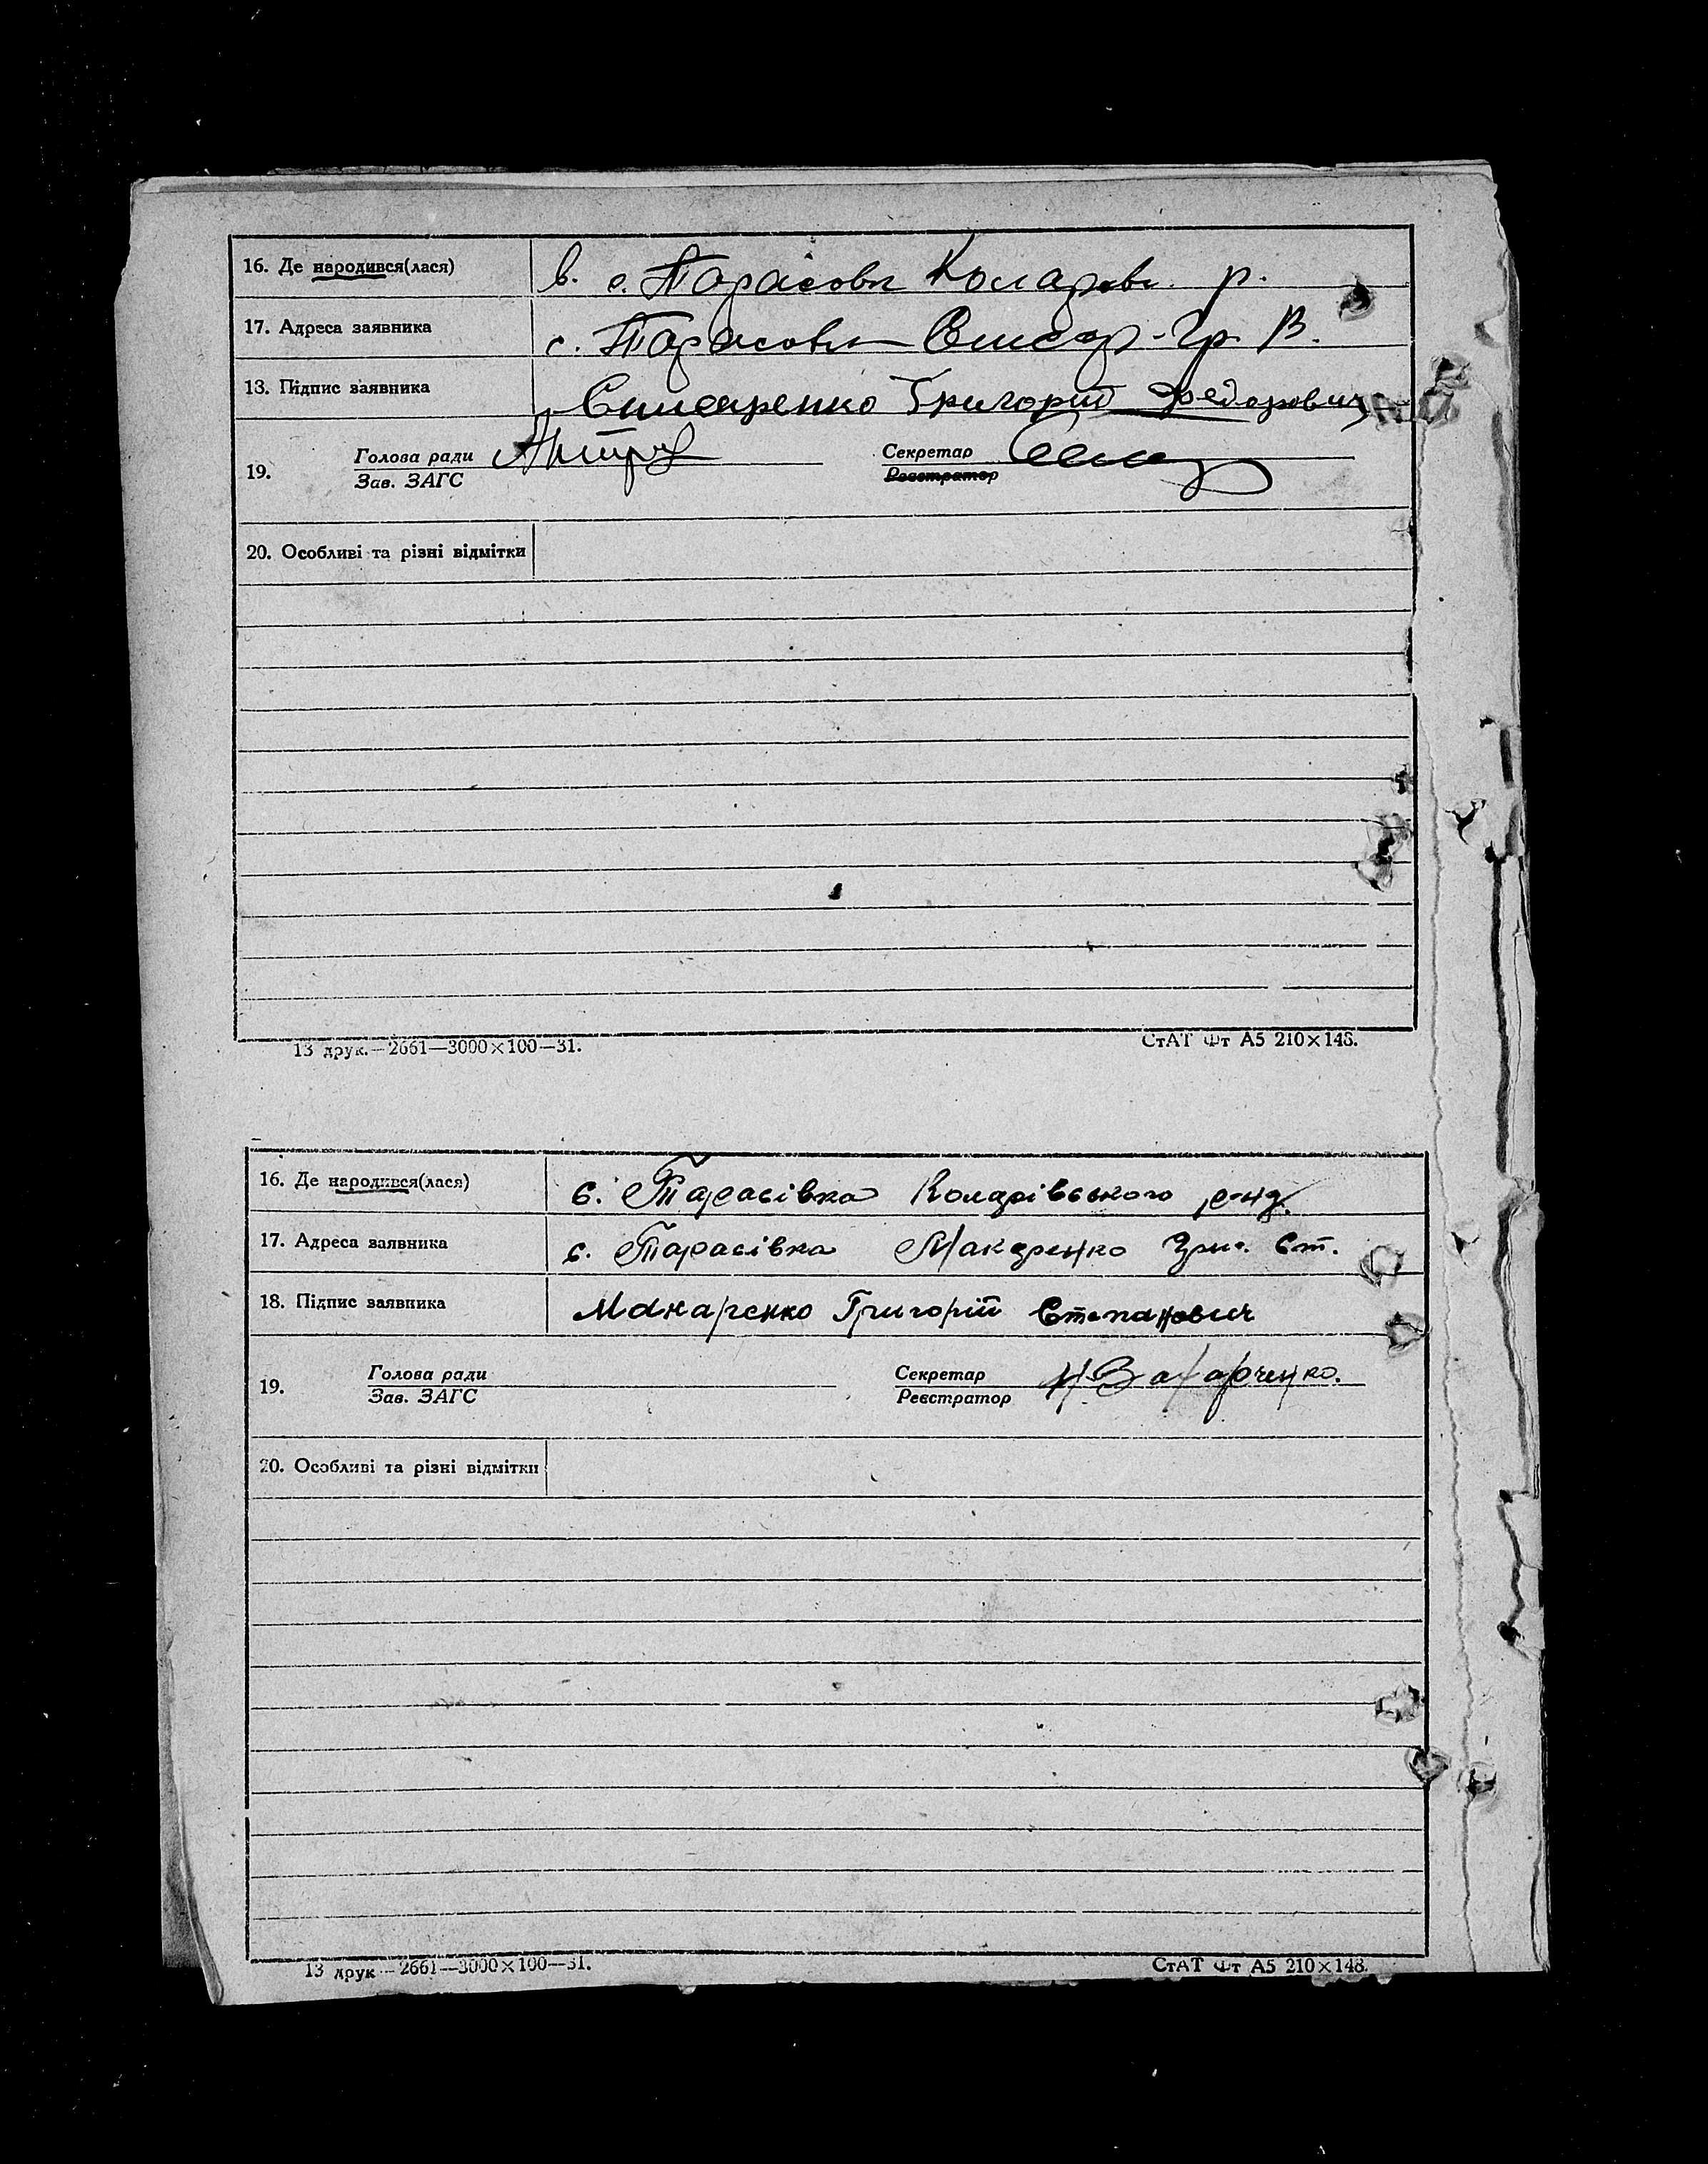 16. Де народився(лася) в. с. Тарасовк Коларовк. р.
17. Адреса заявника с. Тарасовк
13. Підпис заявника Григорий Федорович
19. Голова ради Секретар
Зав. ЗАГС Реєстратор
20. Особливі та різні відмітки
13 друк.—2661—3000×100—31. СтАТ Фт А5 210×148.
16. Де народився(лася) с. Тарасівка Коларівського
17. Адреса заявника с. Тарасівка Макаренко Григ. Ст.
18. Підпис заявника Макаренко Григорій Степанович
19. Голова ради Секретар Н. Захарченко.
Зав. ЗАГС Реєстратор
20. Особливі та різні відмітки
13 друк—2661—3000×100—31. СтАТ Фт А5 210×148.